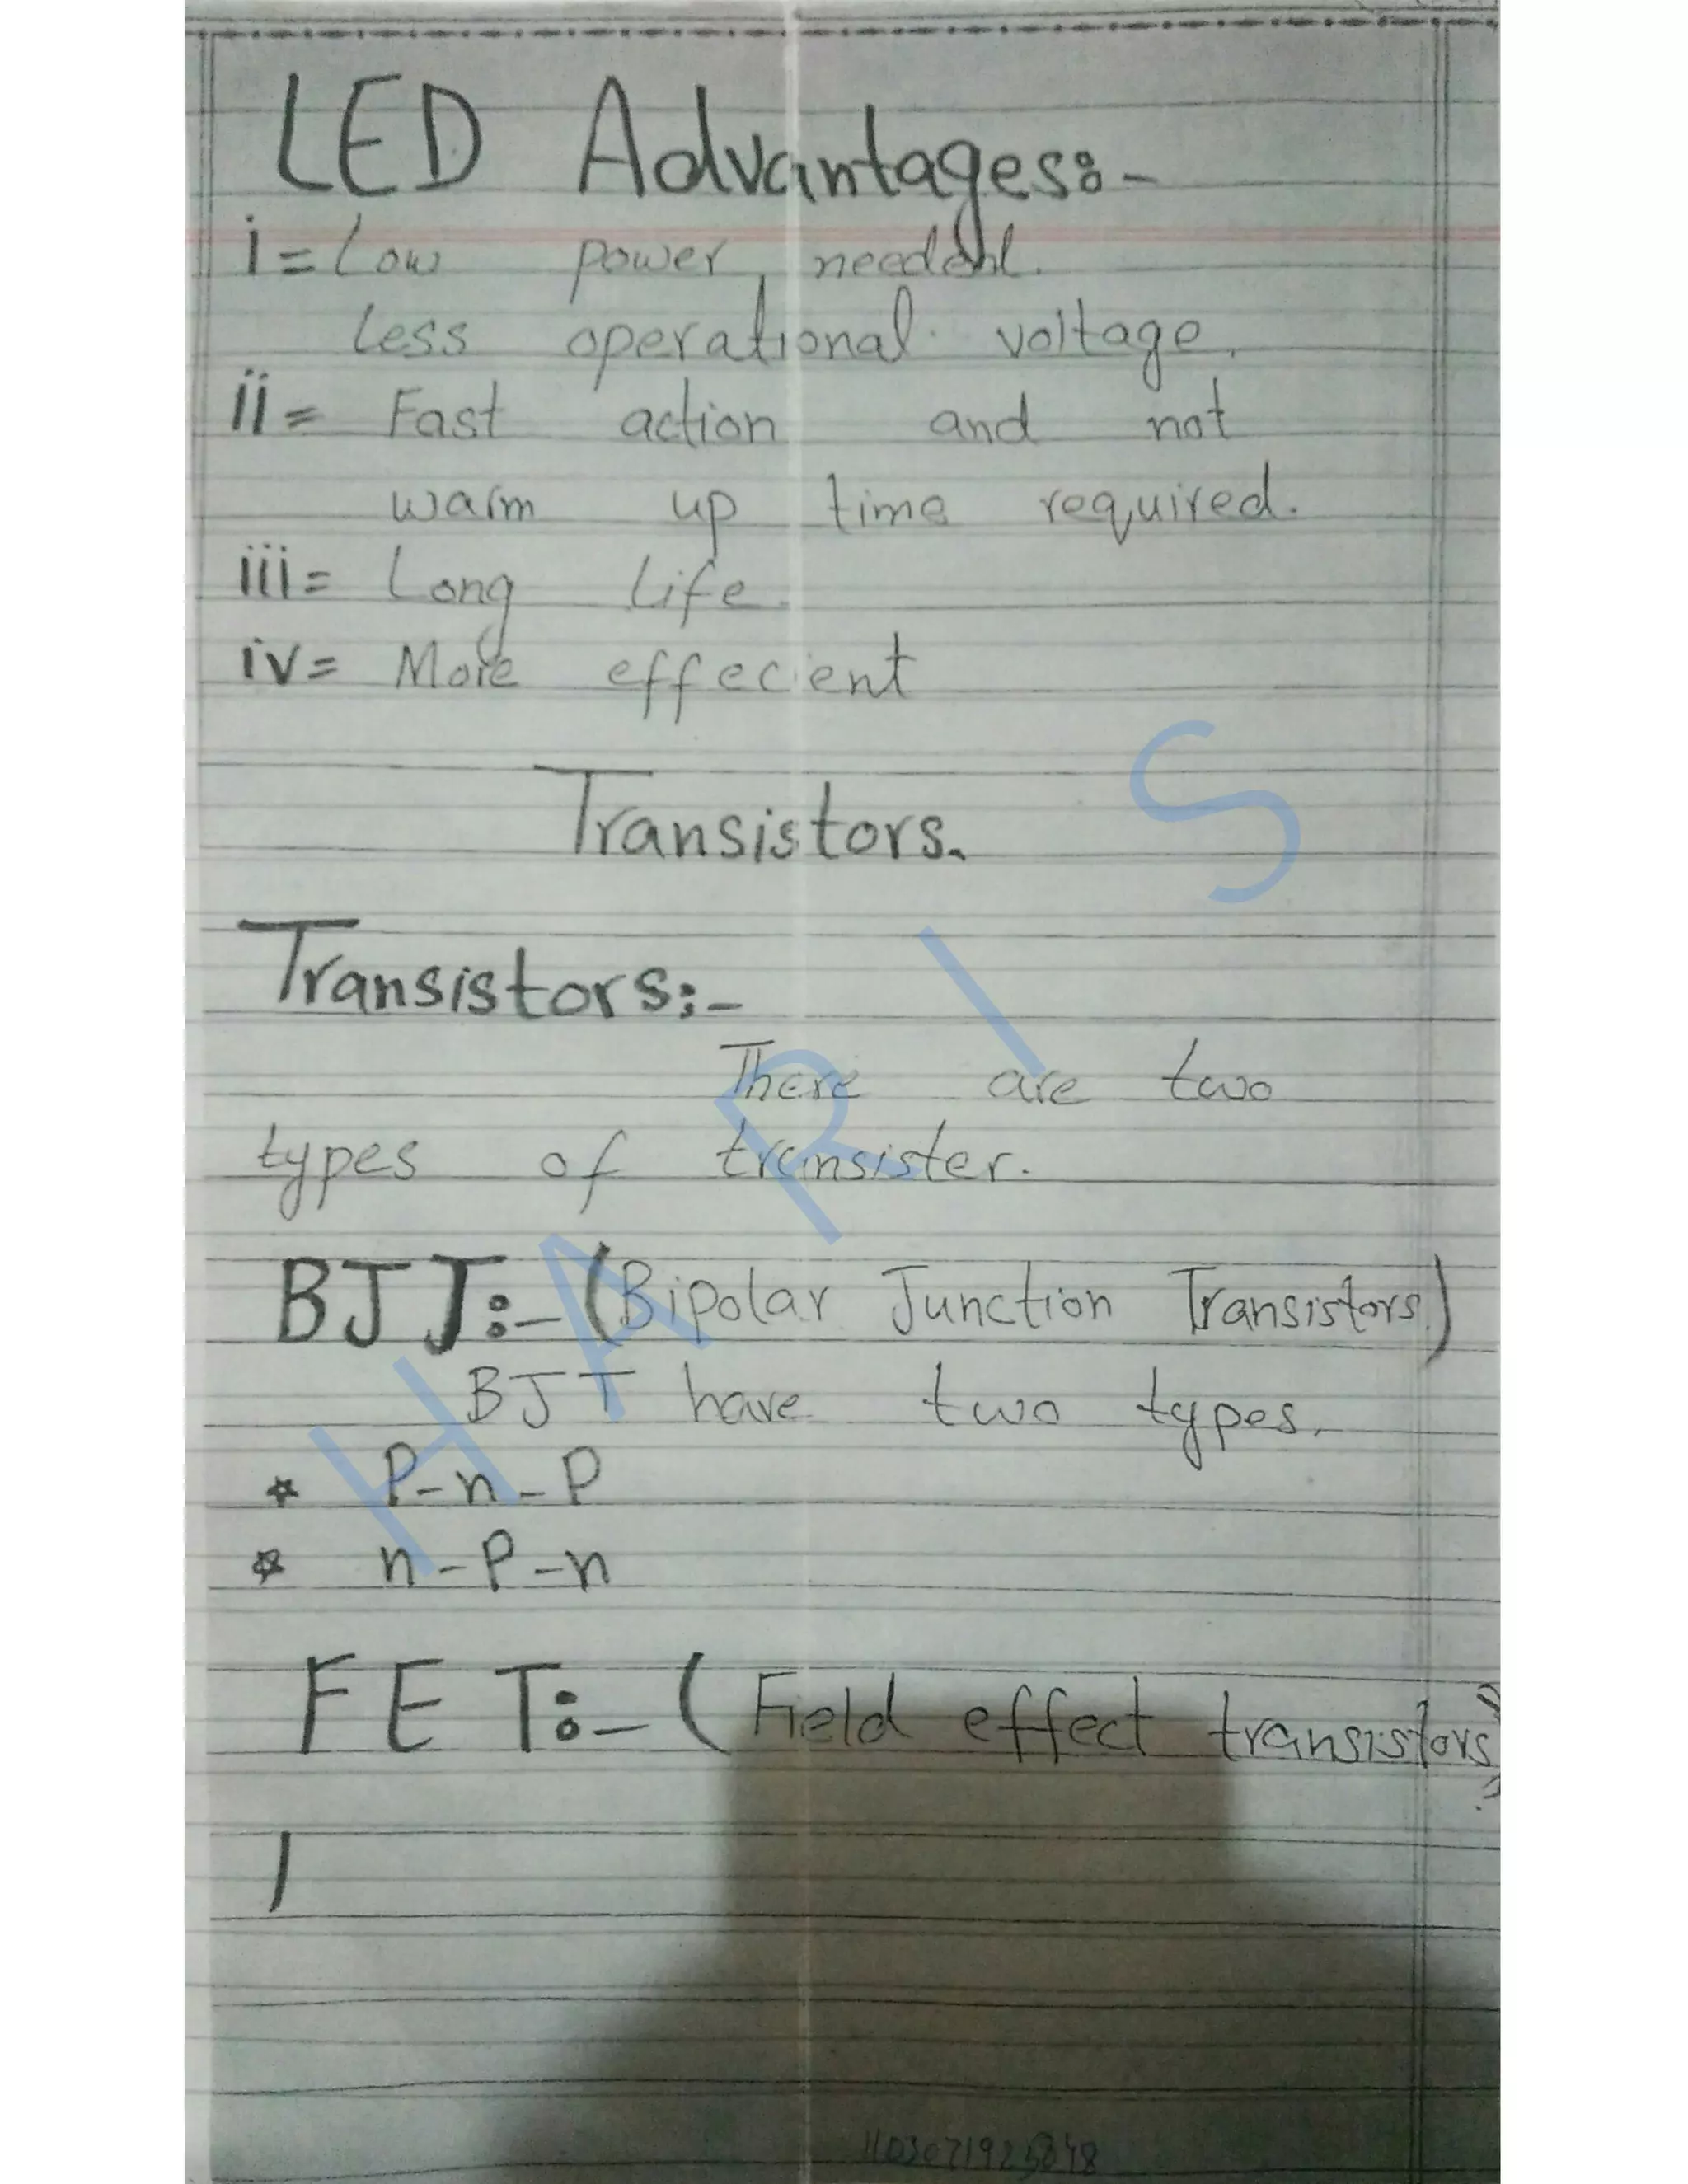 LED Advantages:-
i= Low power needed.
Less operational voltage.
ii= Fast action and not
warm up time required.
iii= Long Life.
iv= More effecient
Transistors.
Transistors:-
There are two
types of transister.
BJT:-(Bipolar Junction Transistors)
BJT have two types.
* P-n-P
* n-P-n
FET:-(Field effect transistors)
HARIS